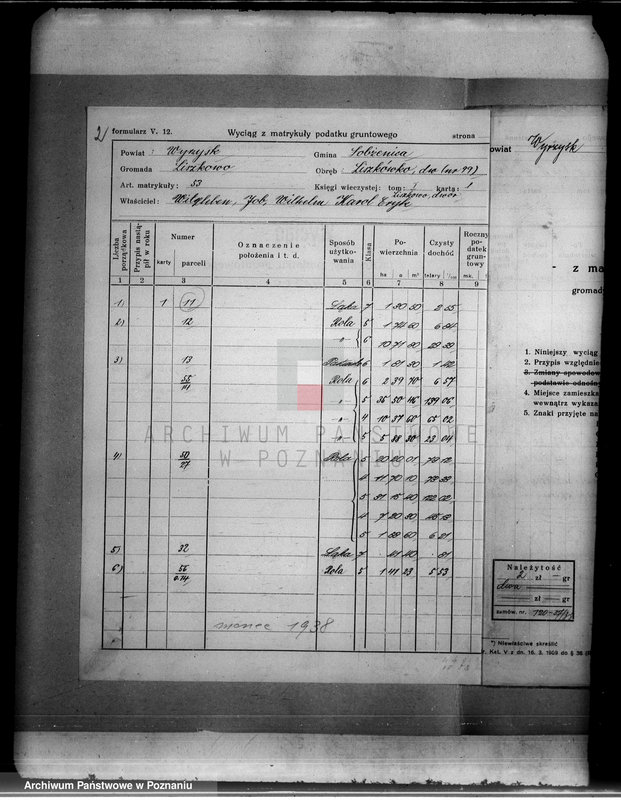 2) formularz V. 12. Wyciąg z matrykuły podatku gruntowego strona
Powiat: Wyrzysk Gmina Łobżenica
Gromada Liszkowo Obręb: Liszkówko, dw. (nr 99)
Art. matrykuły: 53 Księgi wieczystej: tom: karta: 1
Liszkowo, dwór
Właściciel: Witzleben, Job, Wilhelm Karol Eryk
Liczba porządkowa
Przypis nastąpił w roku
Numer
karty parceli
Oznaczenie położenia i t. d.
Sposób użytkowania
Klasa
Powierzchnia
ha a m²
Czysty dochód
talary 1/100
Roczny podatek gruntowy
mk.
1 2 3 4 5 6 7 8 9
1) 1 11 Łąka 7 1 80 50 2 55
2) 12 Rola 5 1 74 60 6 84
" 6 10 71 80 29 39
3) 13 6 1 81 30 1 42
55 Rola 6 2 39 70 6 57
" 5 35 50 46 139 06
" 4 10 37 60 65 02
" 5 5 88 30 23 04
4) 50/27 Rola 5 20 20 01 79 12
4 11 70 10
5 31 15 40 122 02
4 7 20 30
5 1 58 60 6 21
5) 32 Łąka 7 41 40 81
6) 56 Rola 5 1 41 23 5 53
marzec 1938
powiat Wyrzysk
- z ma
gromady
1. Niniejszy wyciąg
2. Przypis względnie
3. Zmiany spowodow
podstawie odnośny
4. Miejsce zamieszka
wewnątrz wykaza
5. Znaki przyjęte na
Należytość
2 zł — gr
dwa
zł — gr
zamów. nr.
*) Niewłaściwe skreślić
r. Kat. V z dn. 16. 3. 1909 do § 36 (II
ARCHIWUM PAŃSTWOWE
W POZNANIU
Archiwum Państwowe w Poznaniu